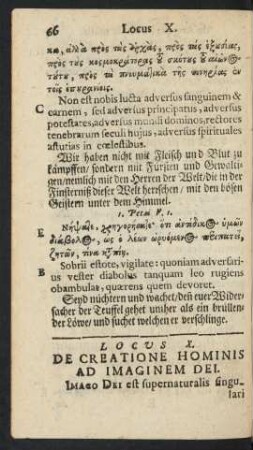 66 Locus X.
κα, ἀλλὰ πρὸς τὰς ἀρχὰς, πρὸς τὰς ἐξουσίας,
πρὸς τοὺς κοσμοκράτορας τοῦ σκότους τοῦ αἰῶνος
τούτου, πρὸς τὰ πνευματικὰ τῆς πονηρίας ἐν
τοῖς ἐπουρανίοις.
Non est nobis lucta adversus sanguinem &
C carnem, sed adversus principatus, adversus
potestates, adversus mundi dominos, rectores
tenebrarum seculi hujus, adversus spirituales
astutias in cœlestibus.
Wir haben nicht mit Fleisch und Blut zu
kämpffen/ sondern mit Fürsten und Gewalti-
gen/nemlich mit den Herren der Welt/die in der
Finsterniß dieser Welt herschen/ mit den bösen
Geistern unter dem Himmel.
1. Petri V. 8.
E Νήψατε, γρηγορήσατε· ὅτι ἀντίδικος ὑμῶν
διάβολος, ὡς ὁ λέων ὠρυόμενος περιπατεῖ,
ζητῶν, τίνα καταπίῃ.
Sobrii estote, vigilate: quoniam adversari-
B us vester diabolus tanquam leo rugiens
obambulat, quærens quem devoret.
Seyd nüchtern und wachet/deñ euer Wider-
sacher der Teuffel gehet umher als ein brüllen-
der Löwe/ und suchet welchen er verschlinge.
LOCUS X.
DE CREATIONE HOMINIS
AD IMAGINEM DEI.
IMAGO DEI est supernaturalis singu-
lari